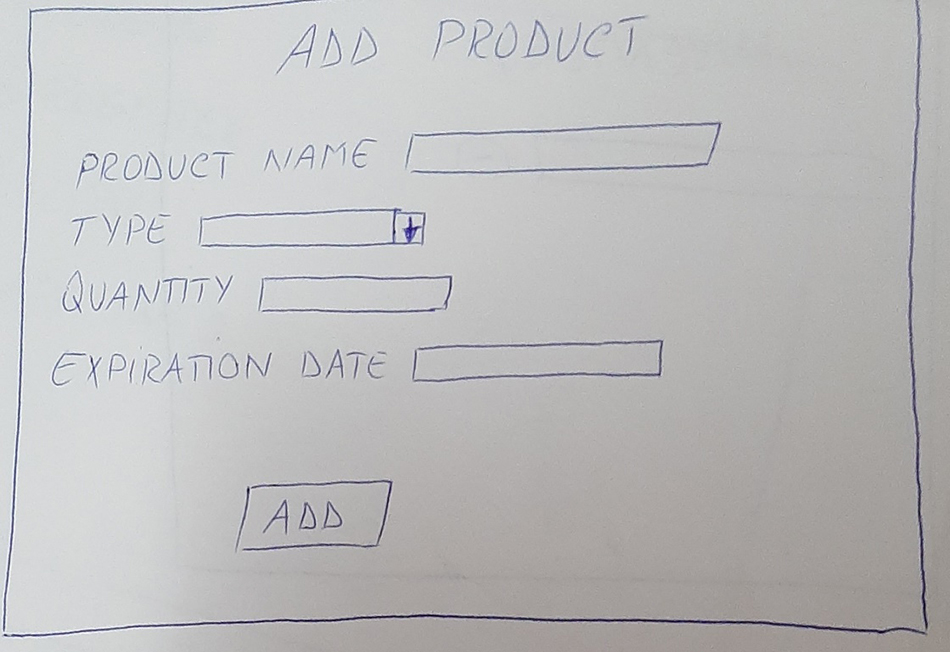 ADD PRODUCT
PRODUCT NAME
TYPE
QUANTITY
EXPIRATION DATE
ADD